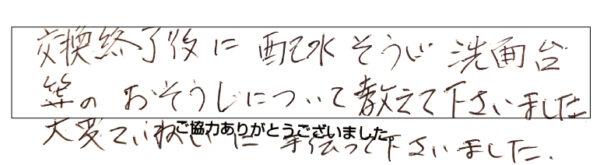 交換終了後に 配水 そうじ 洗面台
等の おそうじについて教えて下さいました
大変ていねいに 手伝って下さいました.
ご協力ありがとうございました